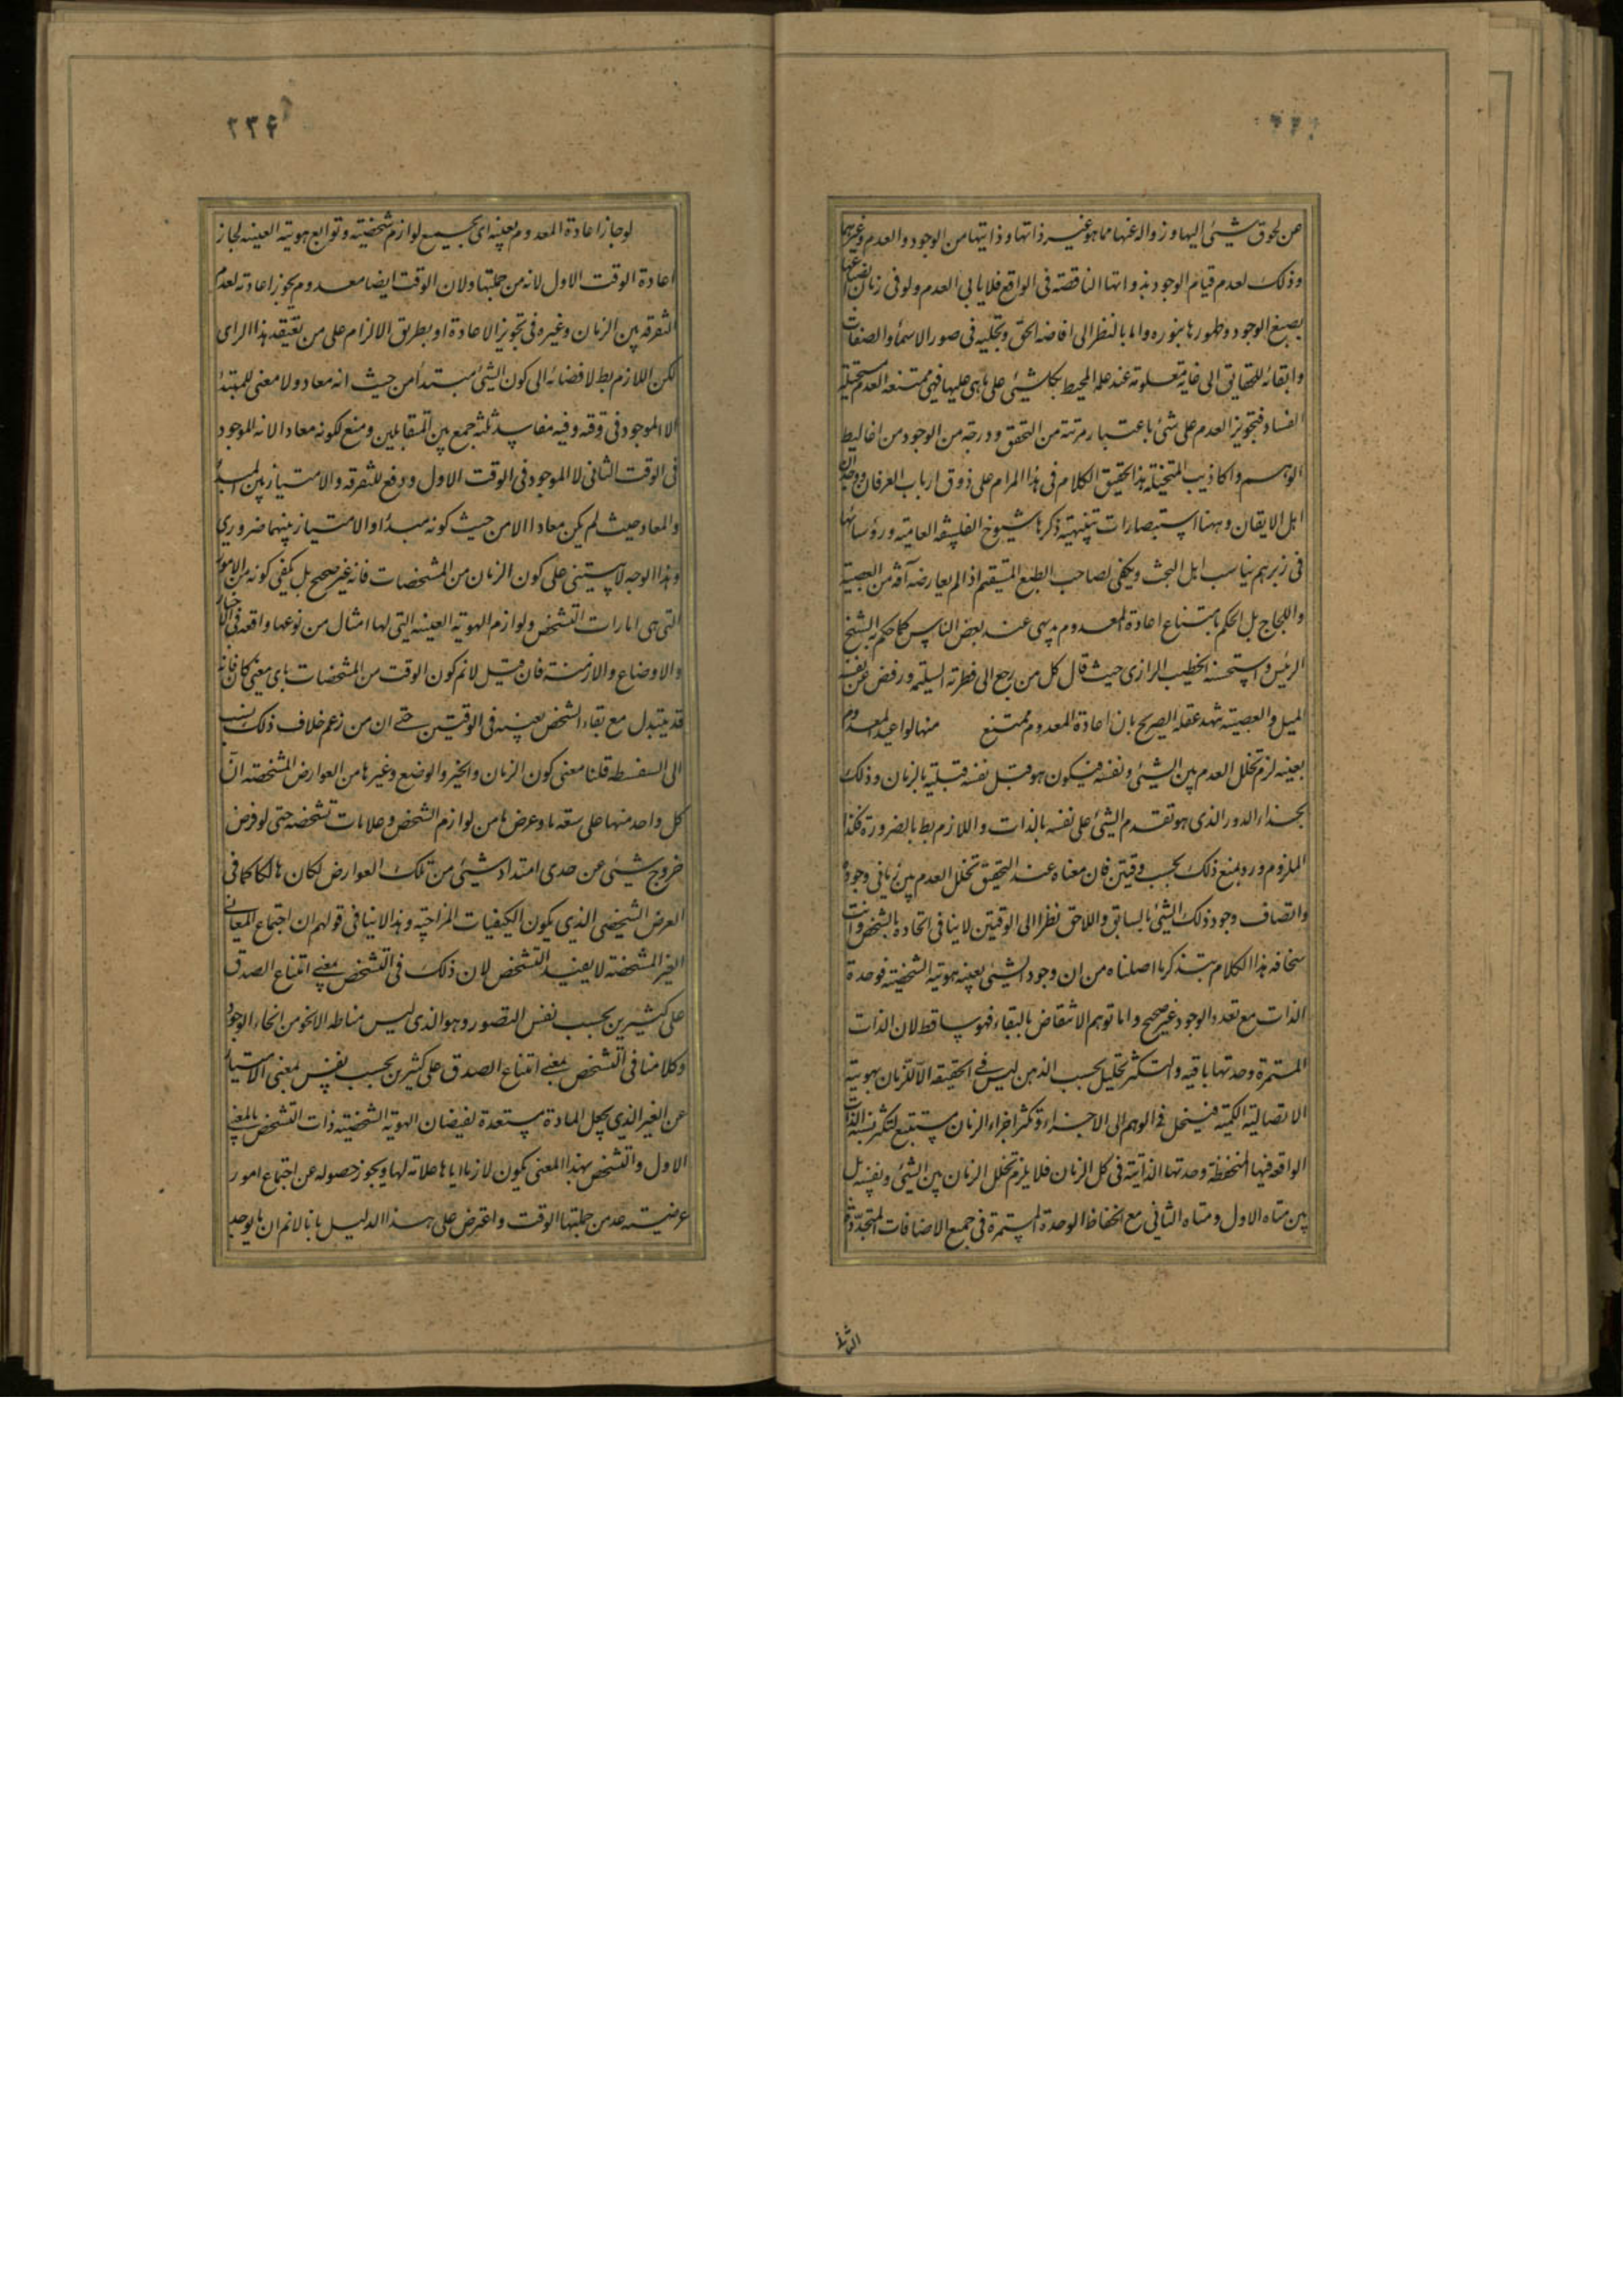 عن لحوق شيئ اليها و زواله عنها مما هو غير ذاتها و ذاتيتها من الوجود و العدم و غيرهما
و ذلك لعدم قيام الوجود بذواتها الناقصة فى الواقع فلا يابى العدم و لو فى زمان انصباغها
بصبغ الوجود و ظهورها بنوره و اما بالنظر الى افاضه الحق و تجليه فى صور الاسماء و الصفات
و ابقائه للحقايق الى غاية معلومة عند علمه المحيط بكل شيئ على ما هى عليها فهى ممتنعه العدم مستحيلة
الفساد فتجويز العدم على شئ باعتبار مرتبة من التحقق و درجة من الوجود من اغاليط
الوهم و اكاذيب المتخيلة هذا تحقيق الكلام فى هذا المرام على ذوق ارباب العرفان و وجدان
اهل الايقان و ههنا استبصارات تنبيهية ذكرها شيوخ الفلسفه العامية و رؤسائها
فى زبرهم يناسب اهل البحث و يكفى لصاحب الطبع المستقيم اذا لم يعارضه آفة من العصبية
و اللجاج بل الحكم بامتناع اعادة المعدوم بديهى عند بعض الناس كما حكم به الشيخ
الرئيس و استحسنه الخطيب الرازى حيث قال كل من رجع الى فطرته السليمه و رفض عن نفسه
الميل و العصبية شهد عقله الصريح بان اعادة المعدوم ممتنع منها لو اعيد المعدوم
بعينه لزم تخلل العدم بين الشيئ و نفسه فيكون هو قبل نفسه قبلية بالزمان و ذلك
بحذاء الدور الذى هو تقدم الشيئ على نفسه بالذات و اللازم بط بالضرورة فكذا
الملزوم و رد بمنع ذلك بحسب وقتين فان معناه عند التحقيق تخلل العدم بين زمانى وجوده
و اتصاف وجود ذلك الشيئ بالسابق و اللاحق نظرا الى الوقتين لا ينافى اتحاده بالشخص و انت
سخافه هذا الكلام بتذكر ما اصلناه من ان وجود الشيئ بعينه هويته الشخصية فوحدة
الذات مع تعدد الوجود غير صحيح و اما توهم الانتقاض بالبقاء فهو ساقط لان الذات
المستمرة وحدتها باقيه و التكثر بتحليل بحسب الذهن ليس فى الحقيقه الا لتكثر الزمان بهويته
الاتصالية الكمية فينحل فى الوهم الى الاجزاء و تكثر اجزاء الزمان مستتبع لتكثر نسبة الذات
الواقعه فيها المنحفظة وحدتها الذاتية فى كل الزمان فلا يلزم تخلل الزمان بين الشيئ و نفسه بل
بين متاه الاول و متاه الثانى مع انحفاظ الوحدة المستمرة فى جميع الاضافات المتجددة

٢٣۶
لو جاز اعادة المعدوم بعينه اى بجميع لوازم شخصيته و توابع هويته العينيه لجاز
اعادة الوقت الاول لانه من جملتها و لان الوقت ايضا معدوم يجوز اعادته لعدم
التفرقه بين الزمان و غيره فى تجويز الاعادة او بطريق الالزام على من يعتقد هذا الراى
لكن اللازم بط لافضائه الى كون الشيئ مبتدأ من حيث انه معاد و لا معنى للمبتدأ
الا الموجود فى وقته و فيه مفاسد ثلثة جمع بين المتقابلين و منع لكونه معادا لانه الموجود
فى الوقت الثانى لا الموجود فى الوقت الاول و رفع للتفرقه و الامتياز بين المبتدأ
و المعاد حيث لم يكن معادا الا من حيث كونه مبتدأ و الامتياز بينهما ضرورى
و هذا الوجه لا يبتنى على كون الزمان من المشخصات فانه غير صحيح بل يكفى كونه من الامور
التى هى امارات التشخص و لوازم الهوية العينيه التى لها امثال من نوعها واقعه فى الاحياز
و الاوضاع و الازمنة فان قيل لا نم كون الوقت من المشخصات باى معنى كان فانه
قد يتبدل مع بقاء الشخص بعينه فى الوقتين حتى ان من زعم خلاف ذلك نسب
الى السفسطه قلنا معنى كون الزمان و الحيز و الوضع و غيرها من العوارض المشخصة ان
كل واحد منها على سعة ما و عرض ما من لوازم الشخص و علامات تشخصه حتى لو فرض
خروج شيئى عن حدى امتداد شيئى من تلك العوارض لكان هالكا كما فى
العرض الشخصى الذى يكون للكيفيات المزاجية و هذا لا ينافى قولهم ان اجتماع المعانى
الغير المشخصة لا يفيد التشخص لان ذلك فى التشخص بمعنى امتناع الصدق
على كثيرين بحسب نفس التصور و هو الذى ليس مناطه الا نحو من انحاء الوجود
و كلامنا فى التشخص بمعنى امتناع الصدق على كثيرين بحسب نفس لمعنى الامتياز
عن الغير الذى يجعل المادة مستعدة لفيضان الهوية الشخصية ذات التشخص بالمعنى
الاول و التشخص بهذا المعنى يكون لازما اياها علامة لها و يجوز حصوله عن اجتماع امور
عرضية عد من جملتها الوقت و اعترض على هذا الدليل بانا لا نم ان ما يوجد